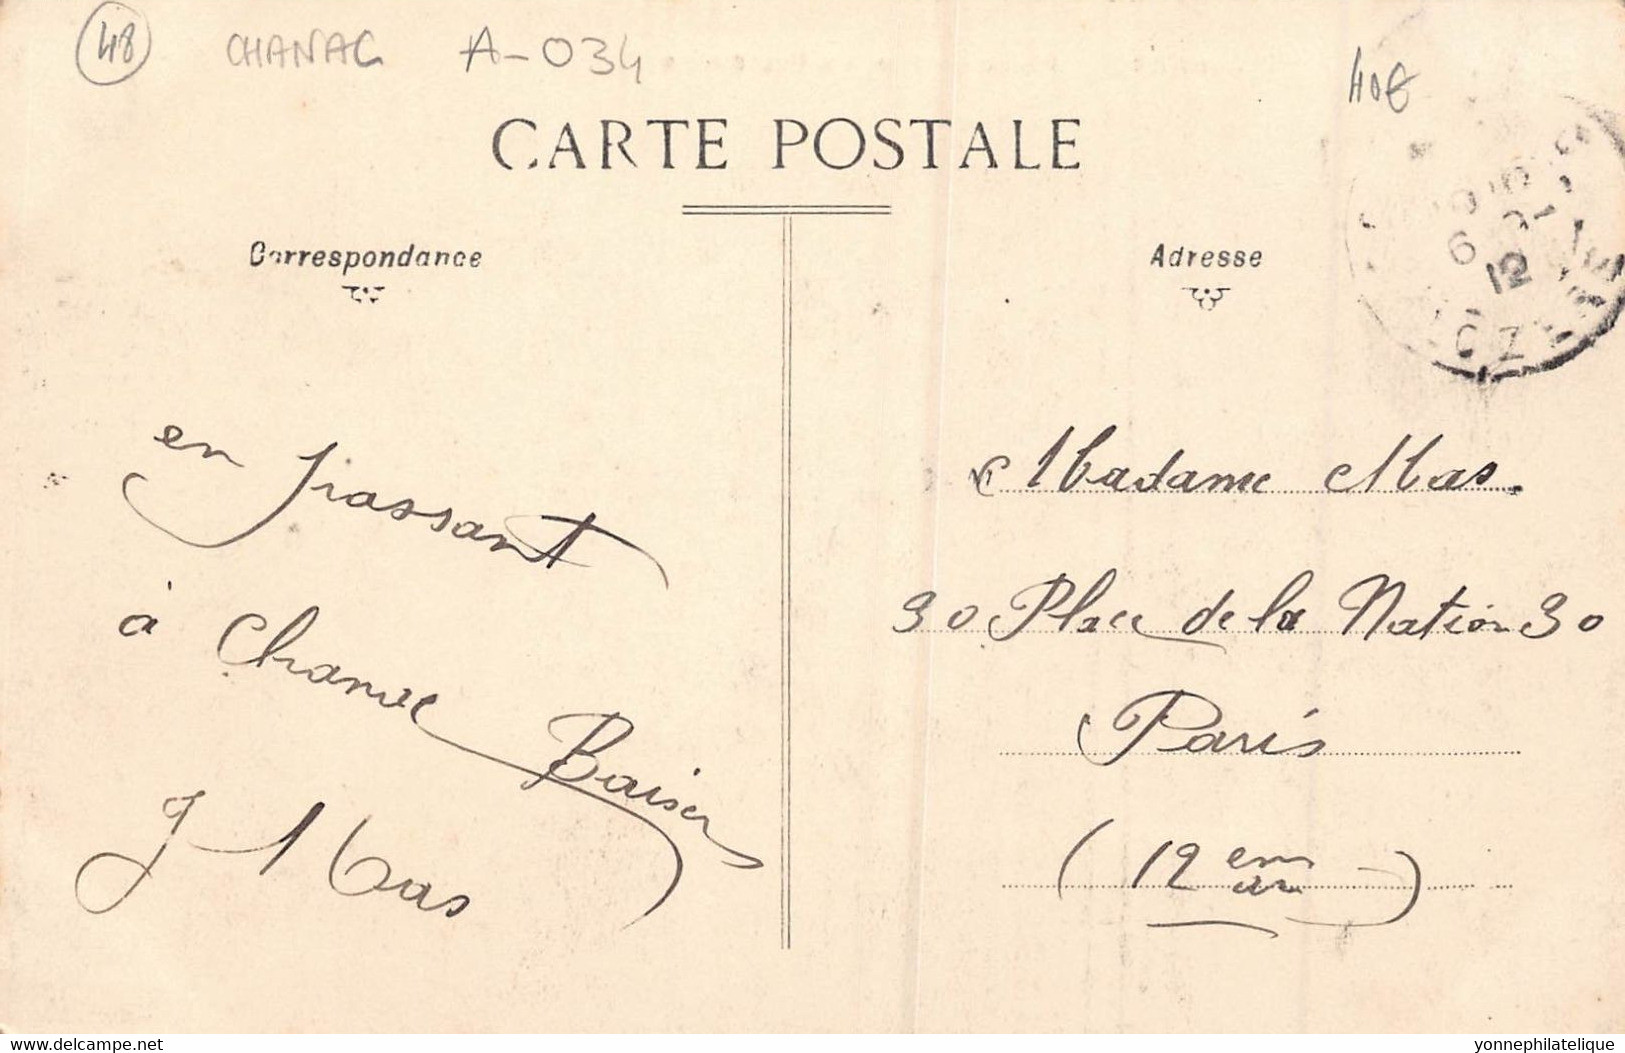 48 CHANAC A-034
40€
CARTE POSTALE
Correspondance
Adresse
en passant
à Chanac
Baisers
J Mas
Madame Mas.
30 Place de la Nation 30
Paris
(12 em ar)
www.delcampe.net
yonnephilatelique